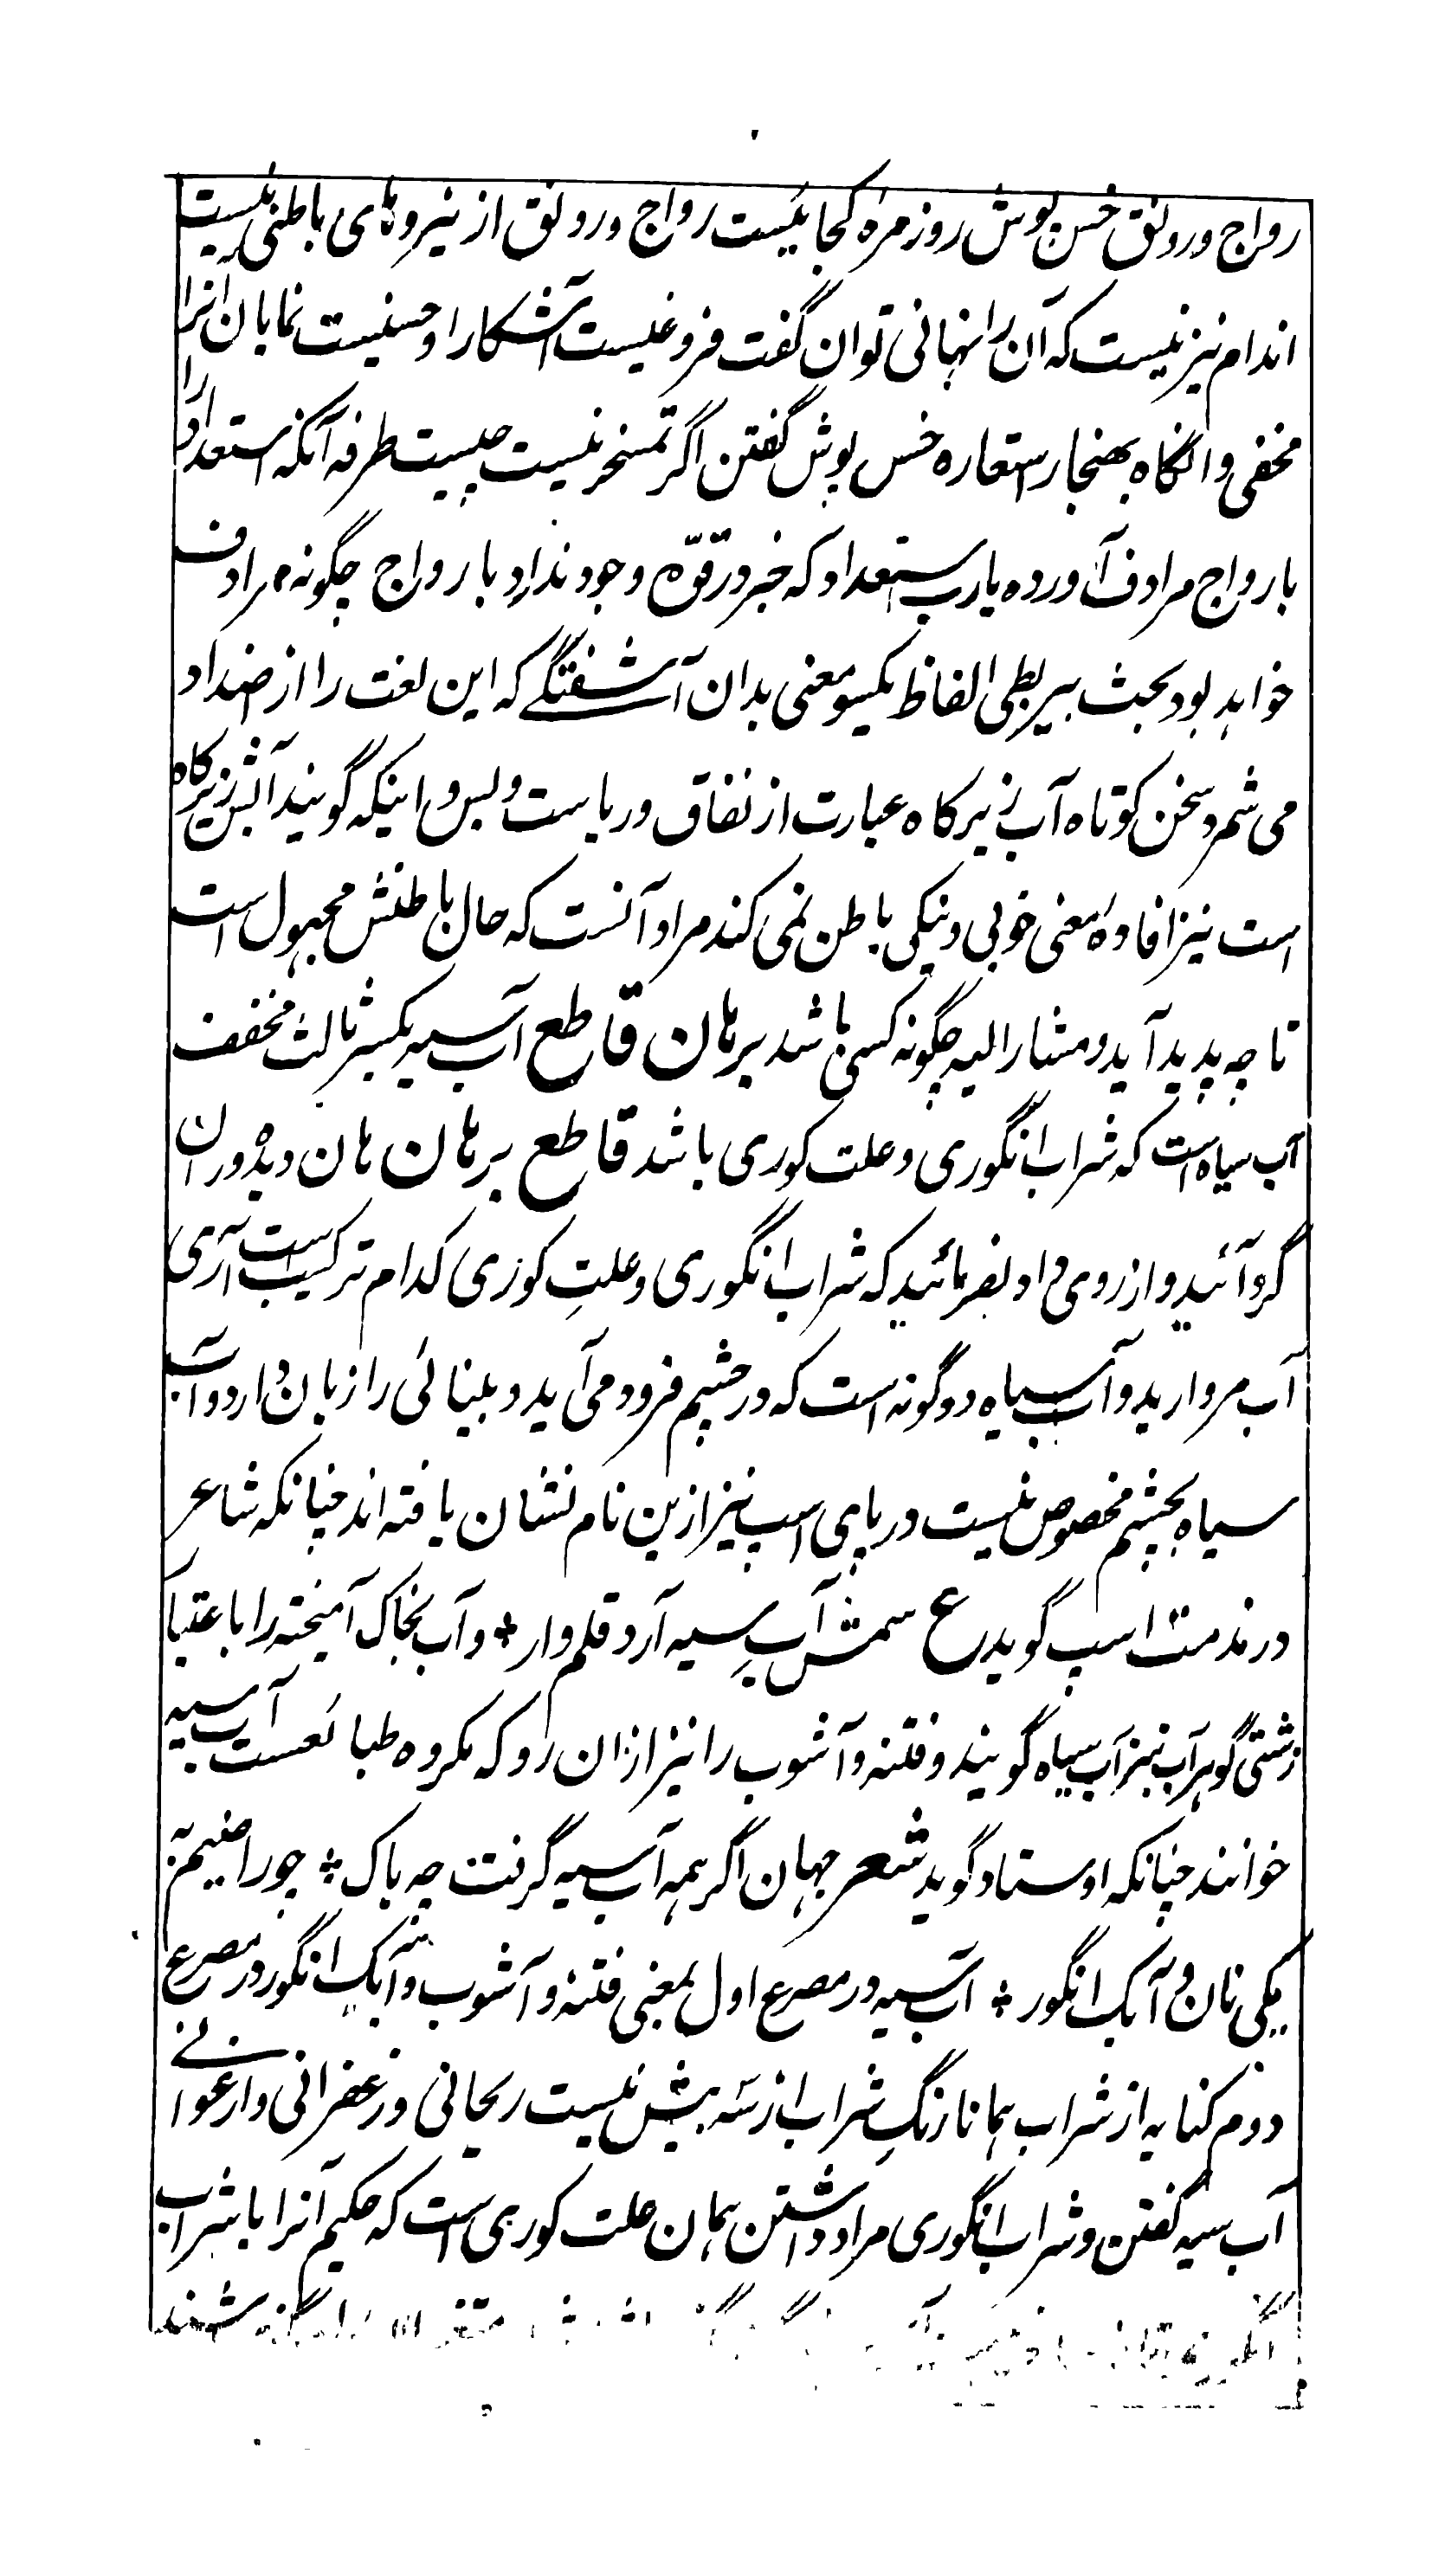 رواج و رونق خس پوش روز مرهٔ کجا نیست رواج و رونق از نیروهای باطنی نیست
اندام نیز نیست که آن را نهانی توان گفت فروغیست آشکارا و حسنیست نمایان آنرا
مخفی و آنگاه بهنجار استعاره خس پوش گفتن اگر تمسخر نیست چیست طرفه آنکه استعداد را
با رواج مرادف آورده یارب استعداد که جز در قوّه وجود ندارد با رواج چگونه مرادف
خواهد بود بحث بیربطی الفاظ یکسو معنی بدان آشفتگی که این لغت را از اضداد
می شمرد سخن کوتاه آب زیر کاه عبارت از نفاق و ریاست و بس و اینکه گویند آبش زیر کاه
است نیز افادهٔ معنی خوبی و نیکی باطن نمی کند مراد آنست که حال باطنش مجهول است
تا چه پدید آید و مشار الیه چگونه کسی باشد برهان قاطع آب سیه بکسر ثالث مخفف
آب سیاه است که شراب انگوری و علت کوری باشد قاطع برهان هان دیده وران
گرد آئید و از روی داد بفرمائید که شراب انگوری و علتِ کوری کدام ترکیب است آری
آب مروارید و آب سیاه دو گونه است که در چشم فرود می آید و بینائی را زیان دارد و آب
سیاه بچشم مخصوص نیست در پای اسپ نیز ازین نام نشان یافته اند چنانکه شاعر
در مذمت اسپ گوید ع سمش آبِ سیه آرد قلم وار * و آب بخاک آمیخته را باعتبار
زشتی گوهر آب نیز آب سیاه گویند و فتنه و آشوب را نیز ازان رو که مکروه طبائعست آب سیه
خوانند چنانکه اوستاد گوید شعر جهان اگر همه آب سیه گرفت چه باک * چو راضیم به
یکی نان و آبک انگور * آب سیه در مصرع اول بمعنی فتنه و آشوب و آبک انگور در مصرع
دوم کنایه از شراب همانا رنگِ شراب از سه بیش نیست ریحانی و زعفرانی و ارغوانی
آب سیه گفتن و شراب انگوری مراد داشتن همان علت کوری است که حکیم آنرا با شراب